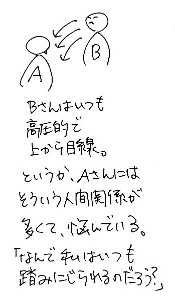 A
B
Bさんはいつも
高圧的で
上から目線。
というか、Aさんには
そういう人間関係が
多くて、悩んでいる。
「なんで私はいつも
踏みにじられるのだろう?」